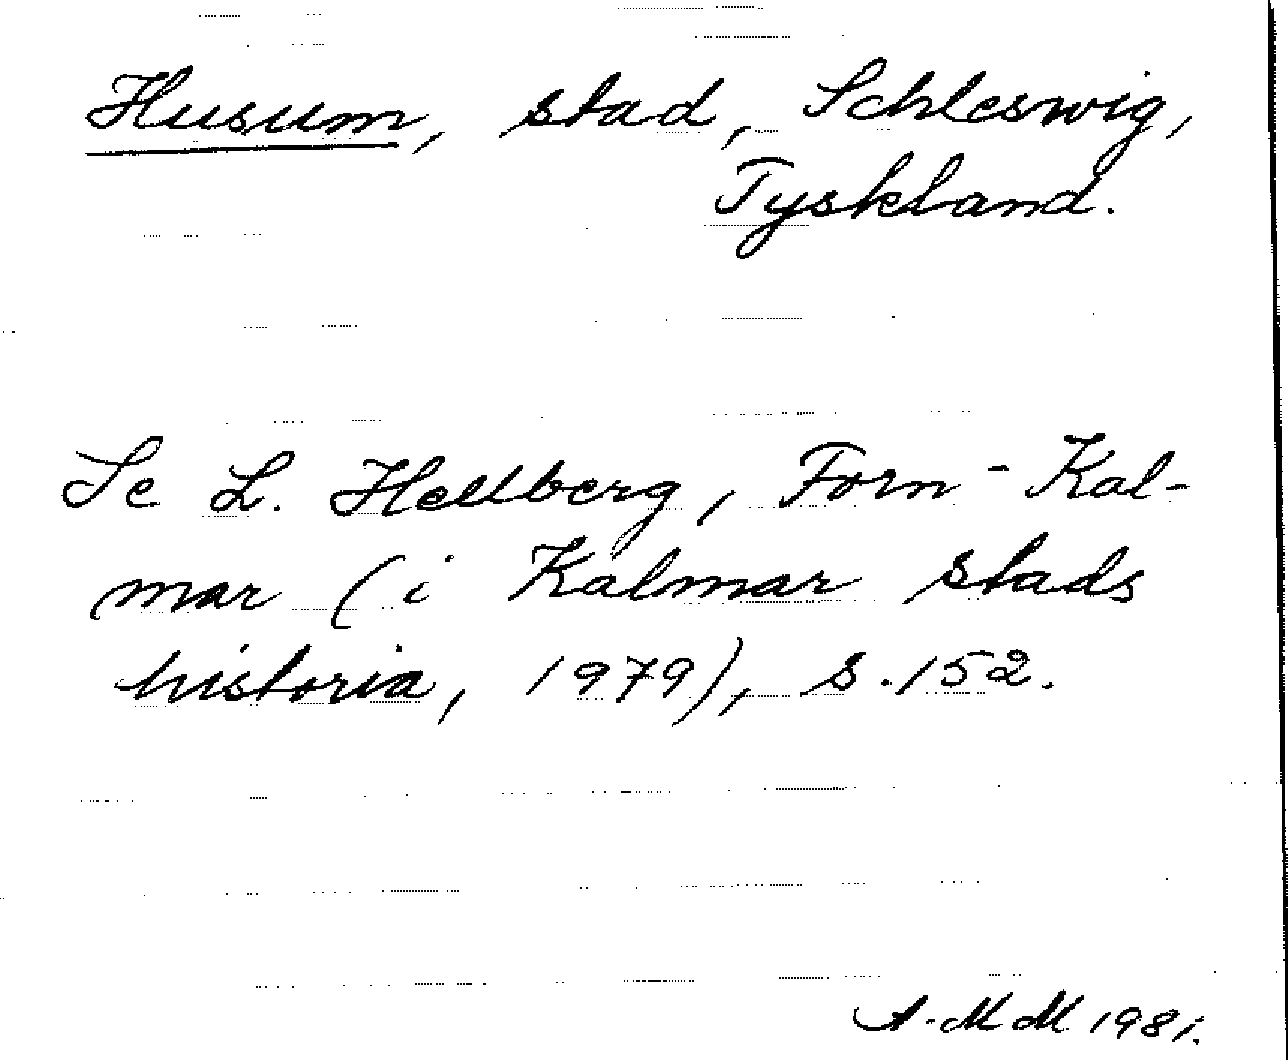 Husum, stad, Schleswig,
Tyskland.
Se L. Hellberg, Forn-Kal-
mar (i Kalmar stads
historia, 1979), s. 152.
A.MM 1981.